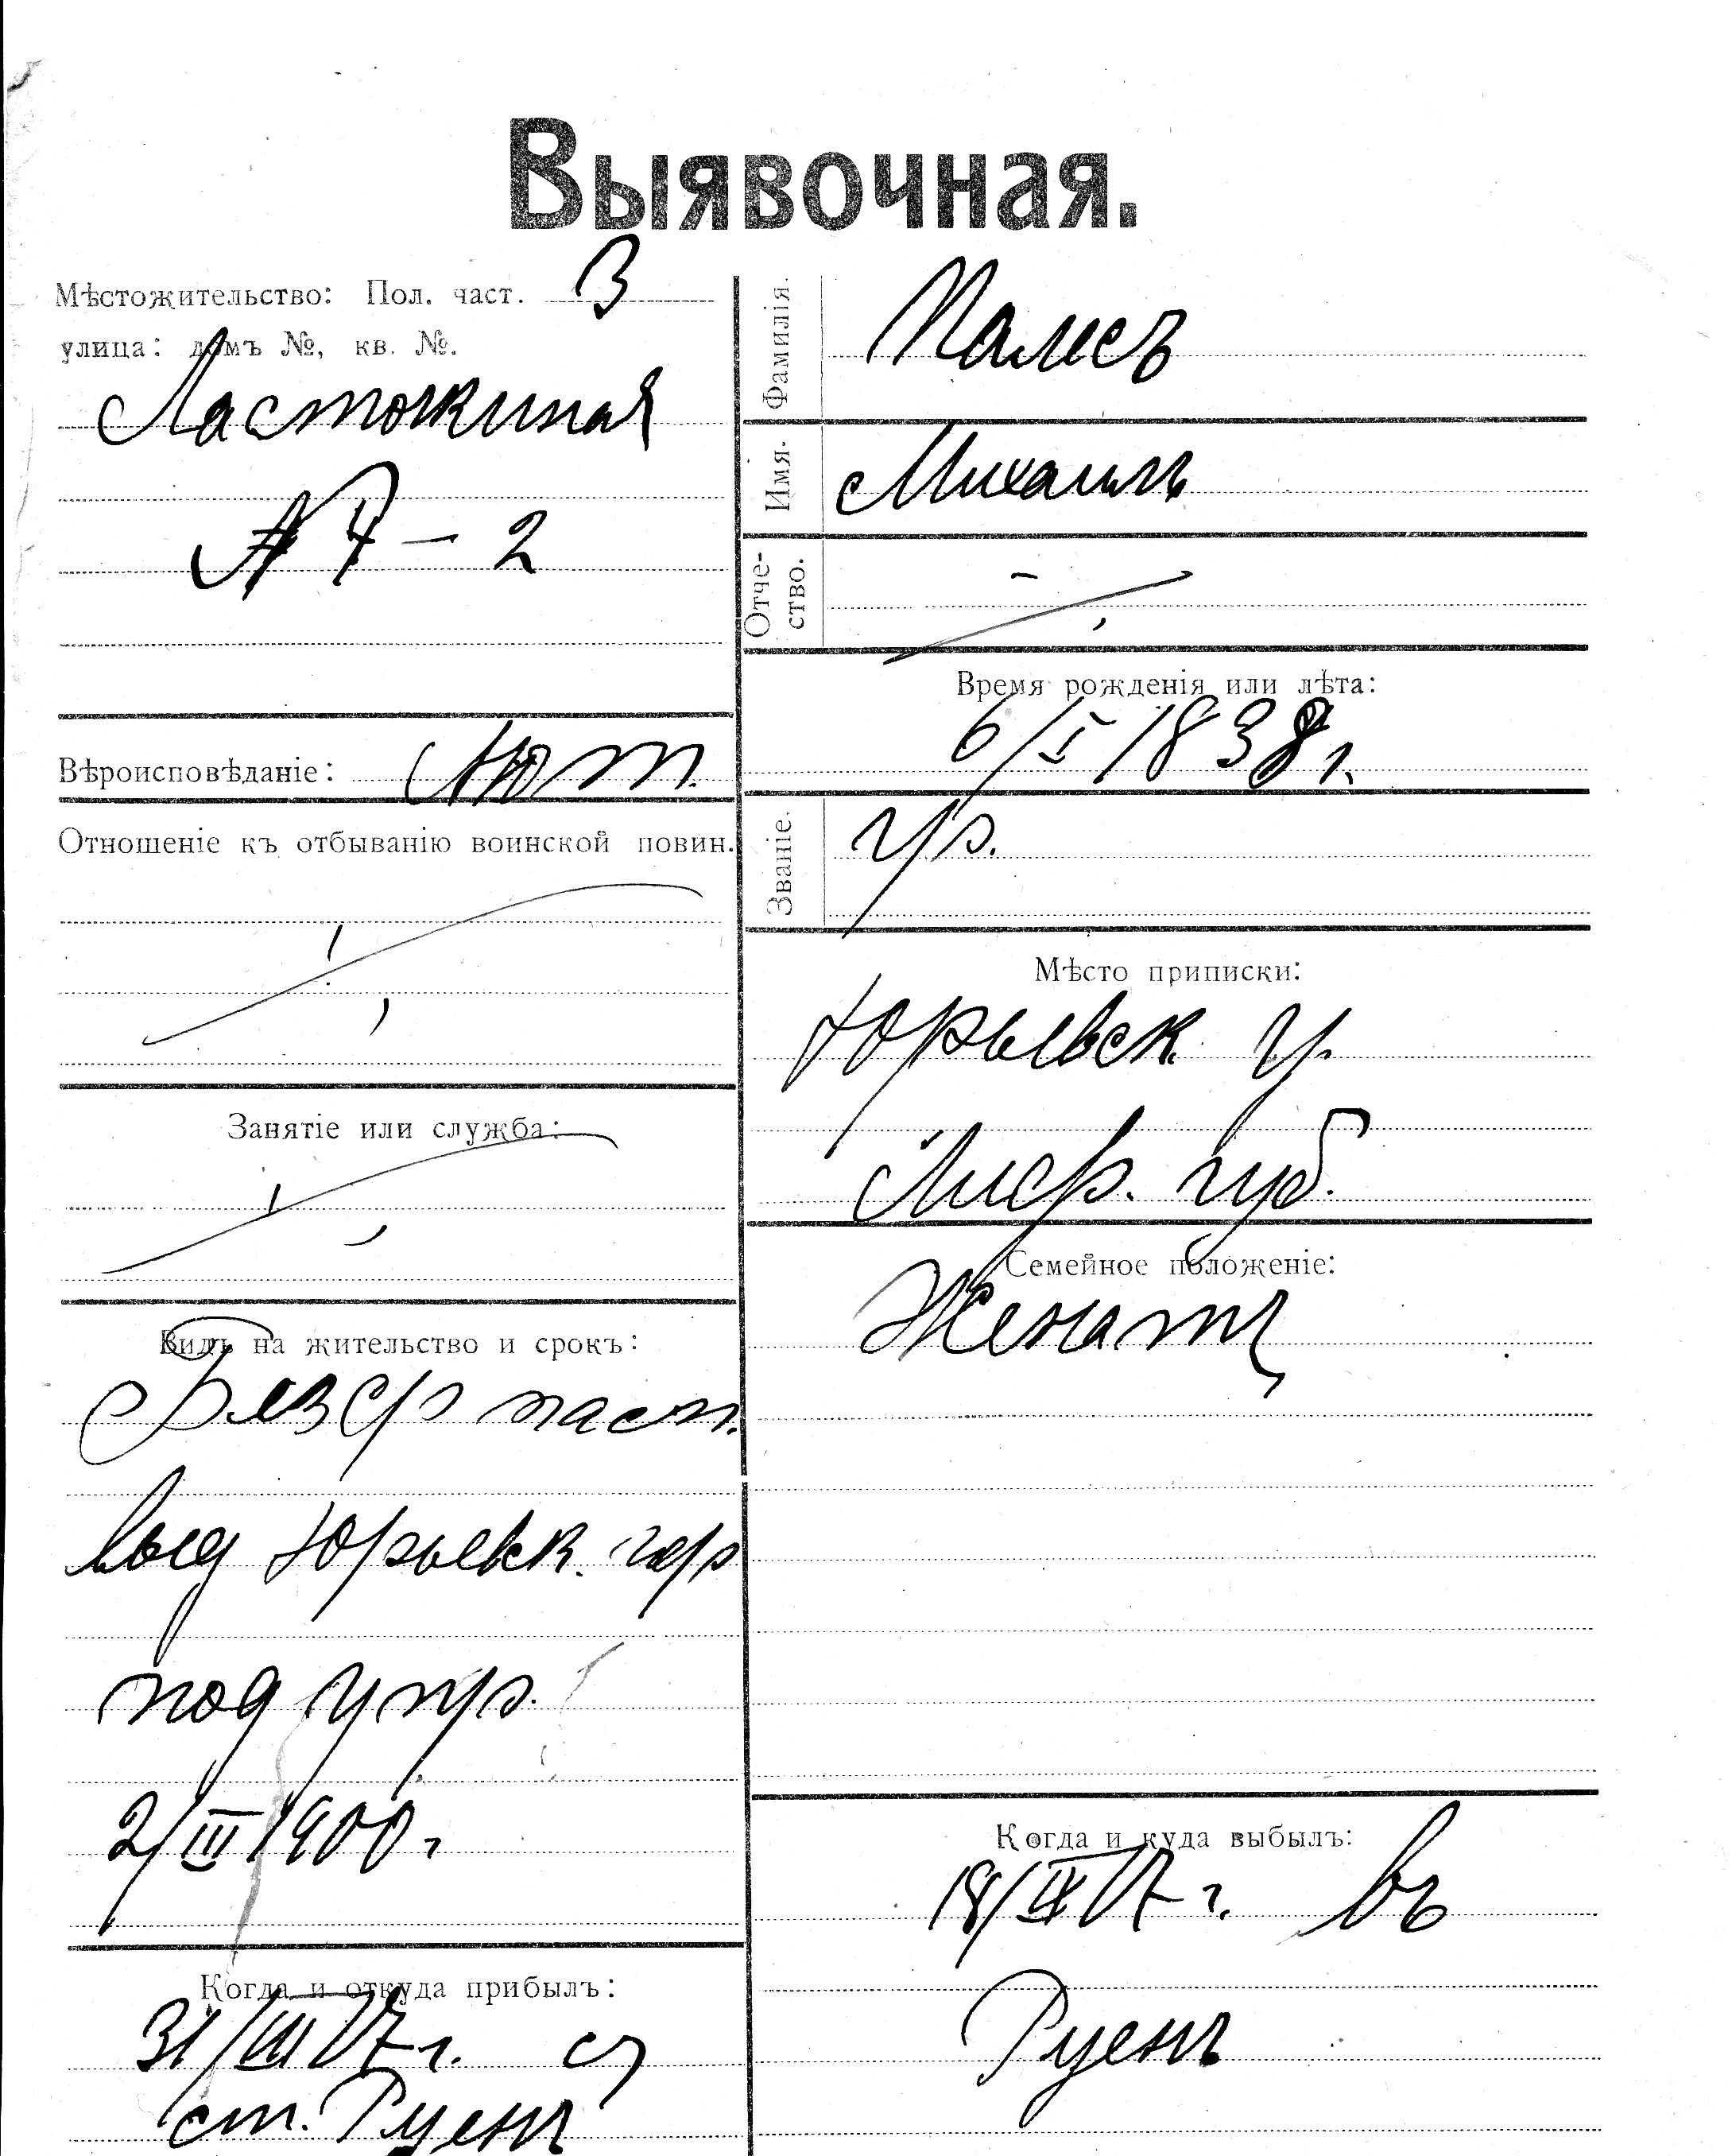 Выявочная.
Мѣстожительство: Пол. част. 3
улица: домъ №, кв. №.
Ласточкиная
№ 7 – 2
Вѣроисповѣданіе: Лют.
Отношеніе къ отбыванію воинской повин.
Занятіе или служба:
Видъ на жительство и срокъ:
Безср пасп.
выд Юрьевск. гор
под упр.
2/III 1900 г
Когда и откуда прибылъ:
31/VIII 17 г. съ
ст. Руенъ
Фамилія. Палисъ
Имя. Михаилъ
Отче-
ство.
Время рожденія или лѣта:
6/I 1838 г.
Званіе. гр.
Мѣсто приписки:
Юрьевск. у.
Лифл. губ.
Семейное положеніе:
Женатъ
Когда и куда выбылъ:
18/IX 17 г. въ
Руенъ